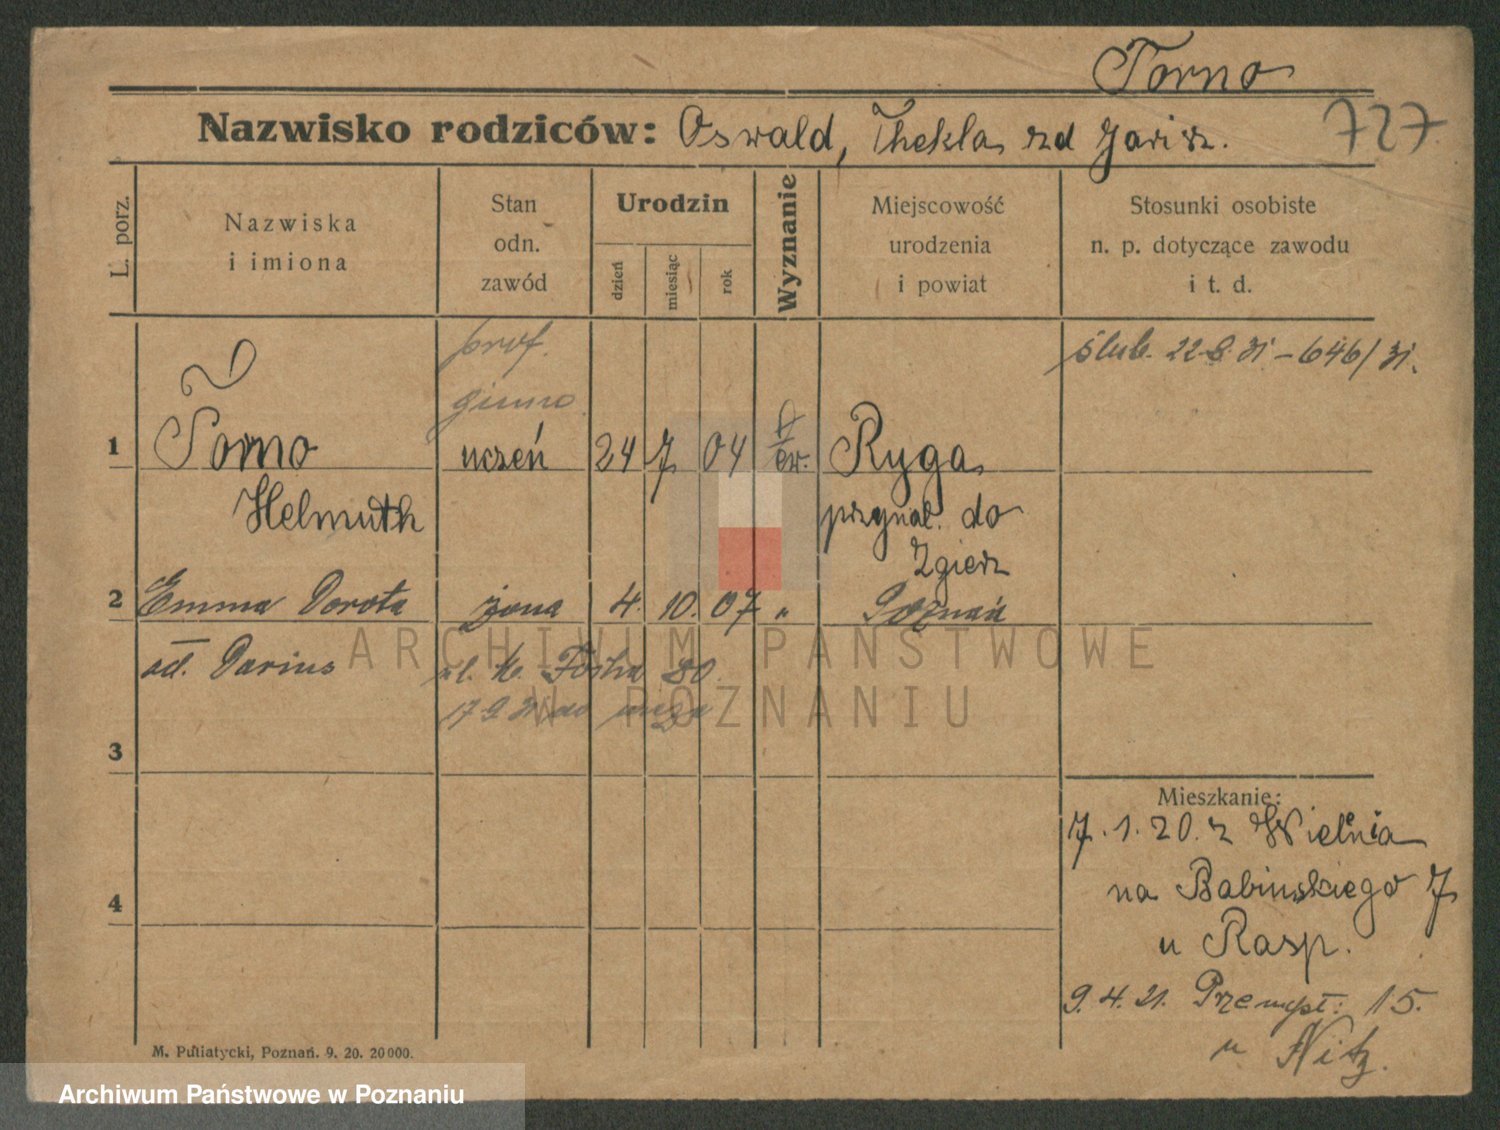 Torno
Nazwisko rodziców: Oswald, Thekla zd Jarisz.
727
L. porz.
Nazwiska
i imiona
Stan
odn.
zawód
Urodzin
dzień
miesiąc
rok
Wyznanie
Miejscowość
urodzenia
i powiat
Stosunki osobiste
n. p. dotyczące zawodu
i t. d.
prof.
ślub. 22.8.31 - 646/31.
1 Torno uczeń 24 7 04 ew. Ryga
Helmuth przynal. do
Zgierz
2 Emma Dorota żona 4. 10. 07 " Poznań
od. Darius
80.
3
Mieszkanie:
7.1.20. z Wielnia
na Babinskiego 7
u Rasp.
4
9.4.21. 15.
u Nitz.
M. Putiatycki, Poznań. 9. 20. 20000.
ARCHIWUM PAŃSTWOWE
W POZNANIU
Archiwum Państwowe w Poznaniu